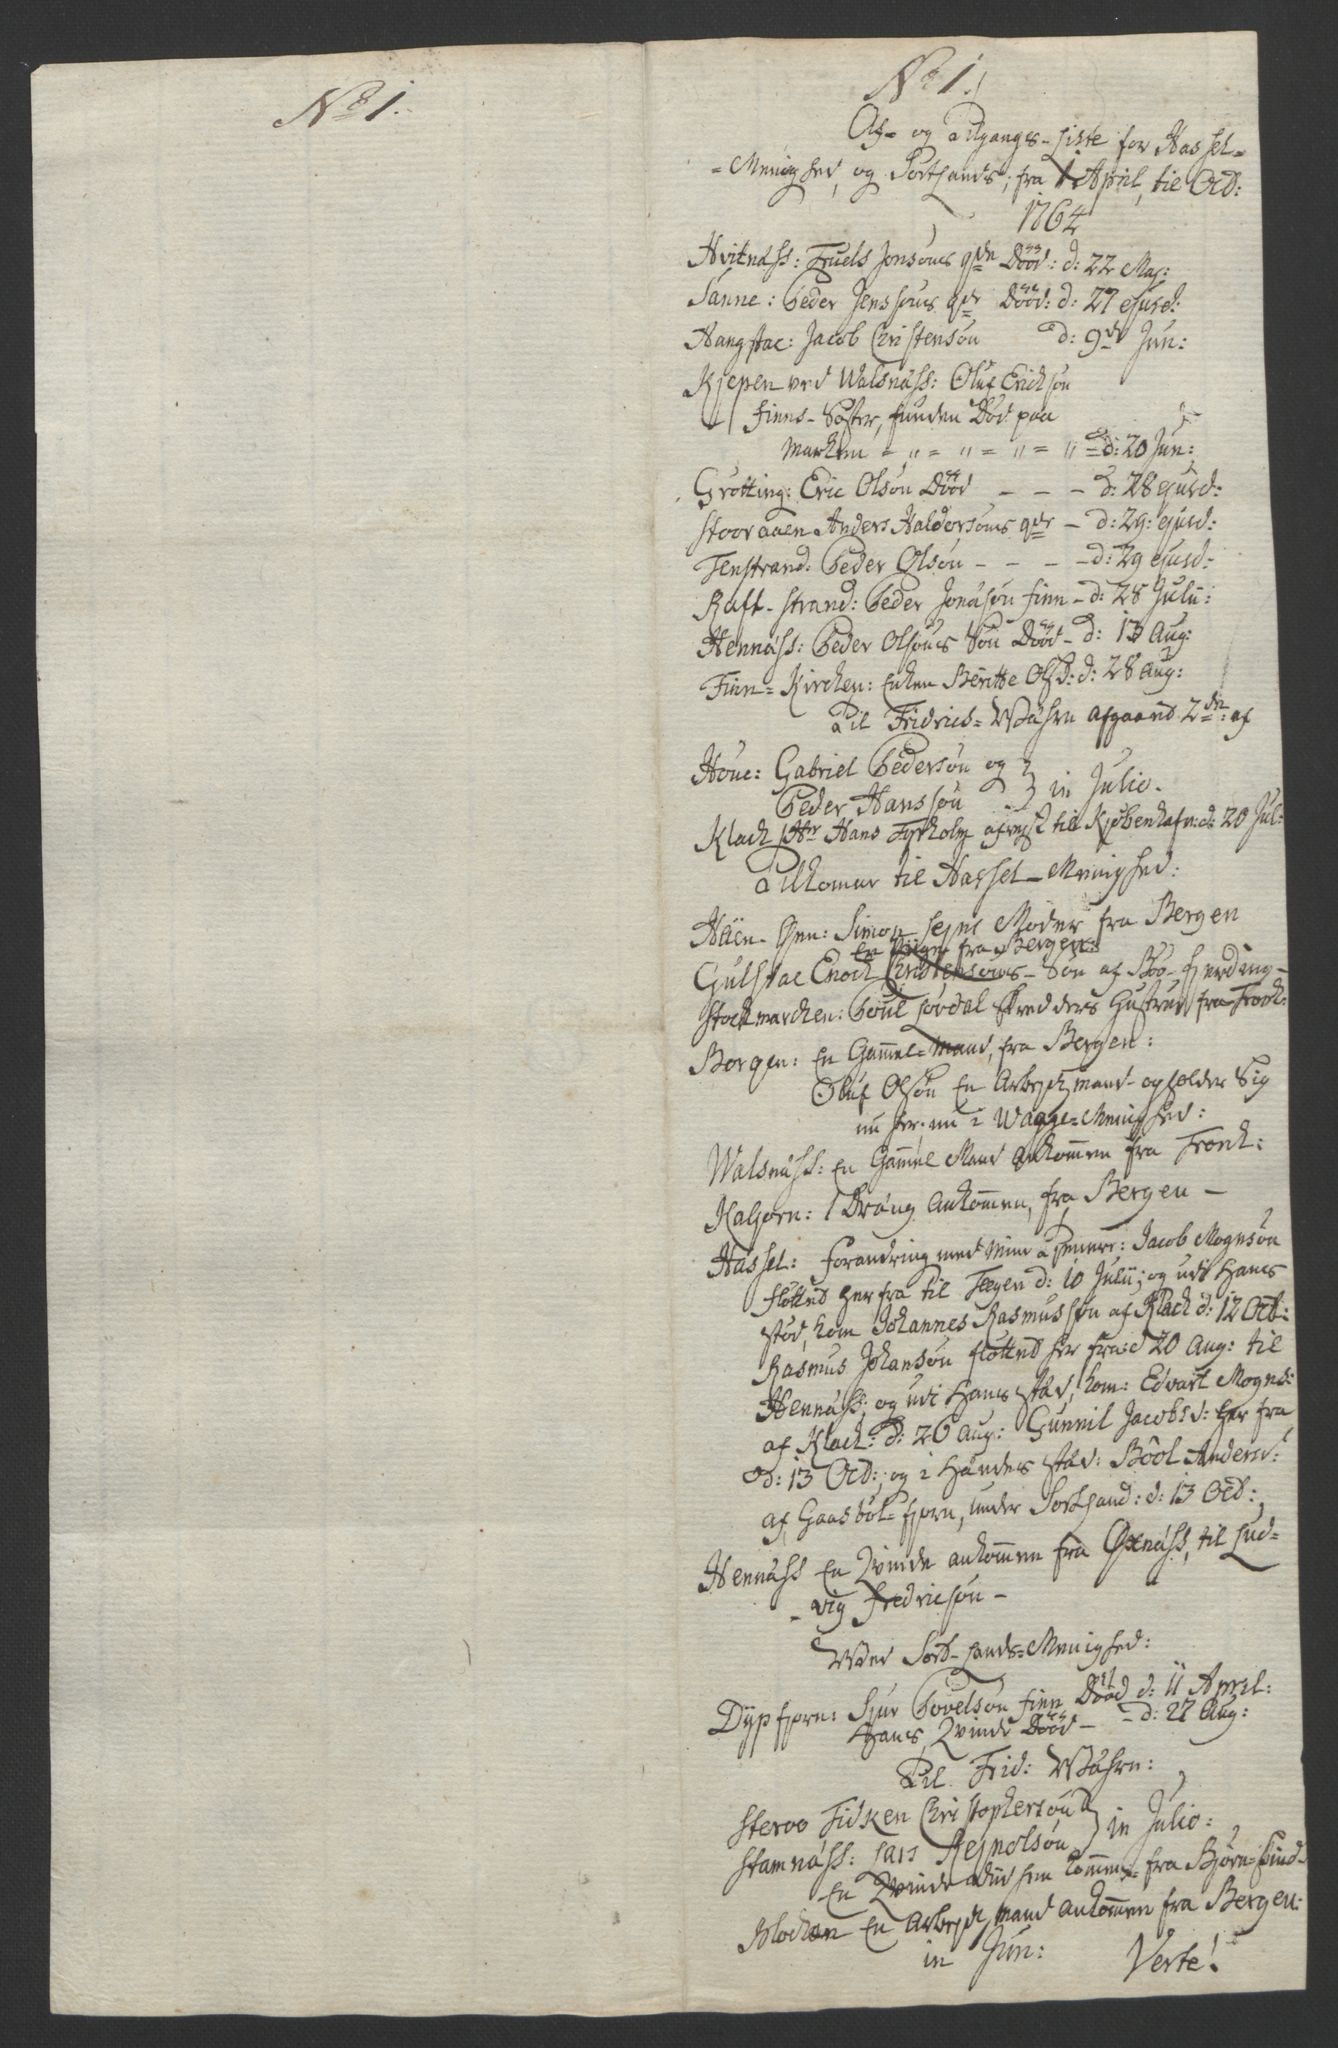 No 1.
No 1.
Af- og Tilgangs-Liste for Hassel-
-Menighed, og Sortlands, fra 1 April, til Oct:
1764
Hvitnäss: Truels Jonsöns qde Död: d: 22 Maj:
Sanne: Peder Jenssöns qde Död: d: 27 ejusd:
Hangstae: Jacob Christensön d: 9de Jun:
Kjepen ved Walsnäss: Oluf Erichsön
Finns-Söster, funden Död paa
Marken - „ - „ - „ - „ - d: 20 Jun:
Grötting: Eric Olsön Död - - - d: 28 ejusd:
Stooraaen Anders Haldorsöns qde - d: 29: ejusd:
Tenstrand: Peder Olsön - - - - d: 29 ejusd:
Raft-strand: Peder Jonäsön Finn - d: 28 Julii:
Hennäss: Peder Olsöns Sön Död - d: 13 Aug:
Finn-Kirchen: Enken Beritte Olsd: d: 28 Aug:
Til Fridrics-Wähn afgaaed 2de: af
Houe: Gabriel Pedersön og }
Peder Hanssön } in Julio.
Klack Hr Hans Tyrholm afrejst til Kjöbenhafn: d: 20 Jul:
Tilkomne til Hassel-Menighed:
Häen-Öen: Simon sejns Moder fra Bergen
En Piige fra Bergen:
Gulstae Enoch Christensöns-Sön af Böe-Fjerding-
Stochmarchen: Poul Lövdal Skredders Hustrue fra Tronh:
Borgen: En Gammel-Mand, fra Bergen:
Oluf Olsön En Arbejdsmand-opholder Sig
nu her: nu i Waage-Menighed:
Walsnäss: En Gammel Mand ankommen fra Tronh:
Kaljorn: 1 Dräng Ankommen, fra Bergen -
Hassel: Forandring med Mine Tienere: Jacob Mognsön
flötted herfra til Teegen d: 10 Julii; og udi Hans
städ, kom Johannes Rasmussön af Klack d: 12 Oct:
Rasmus Johansön flötted her fra: d 20 Aug: til
Hennäss; og udi Hans städ, kom: Edvart Mogns:
af Klack: d: 26 Aug: Gunnil Jacobsd: her fra
d: 13 Oct:; og i Hendes städ: Bool Andersd:
af Gaasböl-fjorn, under Sortland: d: 13 Oct:,
Hennäss En Qvinde ankommen fra Öxnäss, til Lud-
-vig Fredricsön -
Wed Sort-Lands-Menighed:
Dypfjorn: Sjur Povelsön Finn Död d: 11 April:
Hans Qvinde Död - - d: 27 Aug:
Til Frid: Wähn:
Steroo Ficken Christophersön }
Stamnäss: Lars Rejnolsön } in Julio:
En Qvinde kommen fra Björn-Sund-
Blocken En Arbejdsmand ankommen fra Bergen:
in Jun:
Verte!